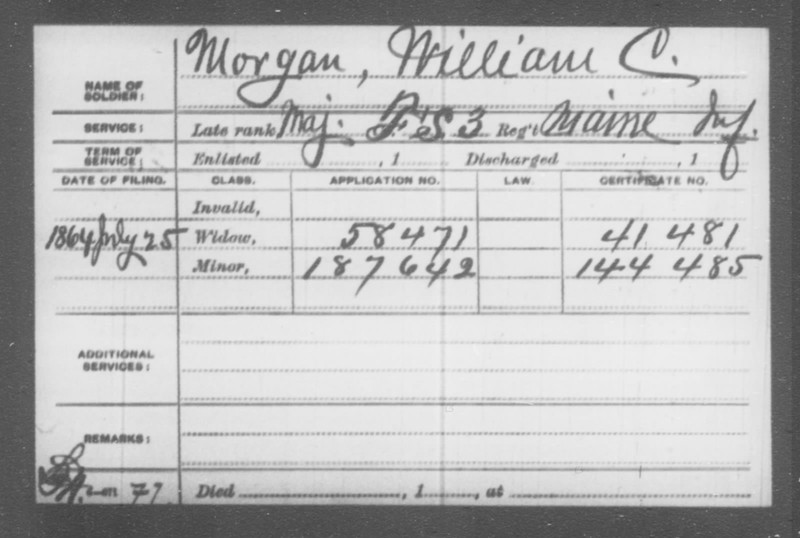 Morgan, William C.
NAME OF SOLDIER:
SERVICE: Late rank Maj. F&S 3 Reg't Maine Inf.
TERM OF SERVICE: Enlisted , 1 Discharged , 1
DATE OF FILING. CLASS. APPLICATION NO. LAW. CERTIFICATE NO.
Invalid,
1864 July 25 Widow, 58 471 41 481
Minor, 187 642 144 485
ADDITIONAL SERVICES:
REMARKS:
77 Died , 1 , at